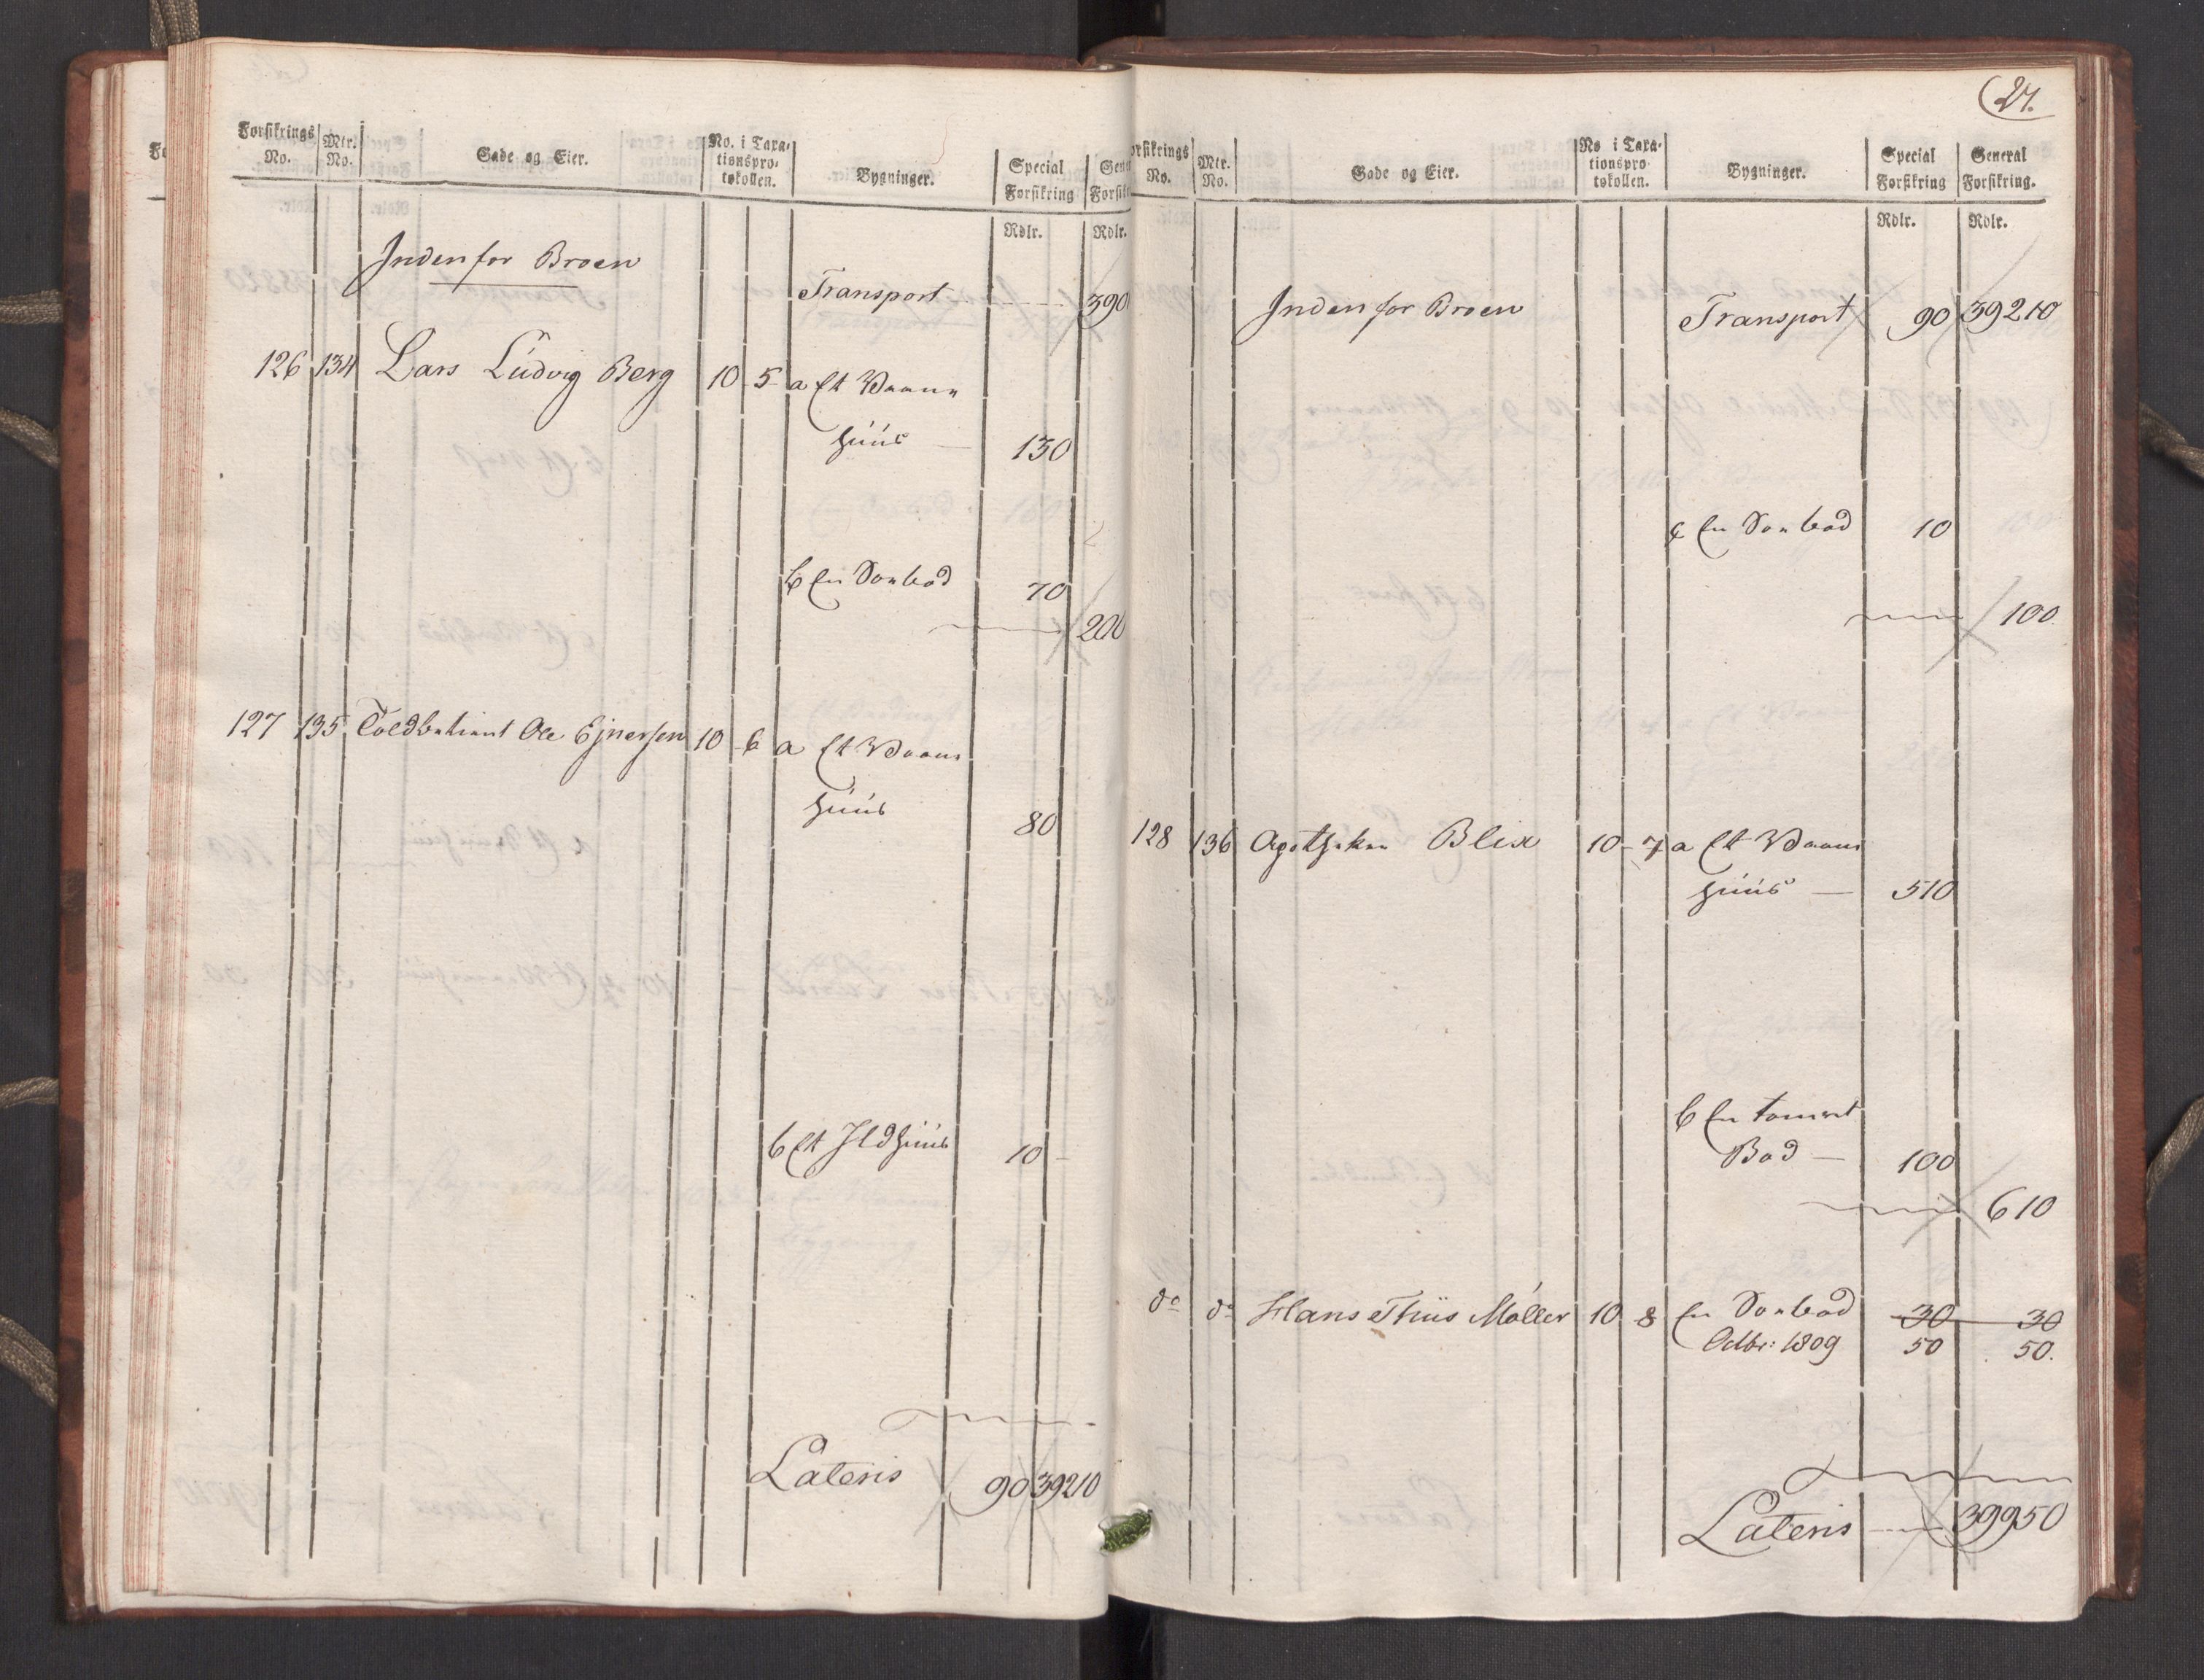 Forsikrings No. Mtr. No. Gade og Eier. No. i Taxationsprotokollen. Bygninger. Special Forsikring
Rdlr. Rdlr.
Indenfor Broen
Transport 390
126 134 Lars Ludvig Berg 10 5 a Et Vaanehuus 130
b En Søebod 70
200
127 135 Toldbetient Ole Ejnersen 10 6 a Et Vaanehuus 80
b Et Ildhuus 10
Lateris 90 39210
27.
Mtr. No. Gade og Eier. No i Taxationsprotokollen. Bygninger. Special Forsikring General Forsikring.
Rdlr. Rdlr.
Indenfor Broen Transport 90 39210
c En Søebod 10
100
128 136 Apotheker Blix 10 7 a Et Vaanehuus 510
b En tømret
Bod 100
610
do do Hans Thiis Møller 10 8 En Søebod 30 30
Octbr: 1809 50 50.
Lateris 39950